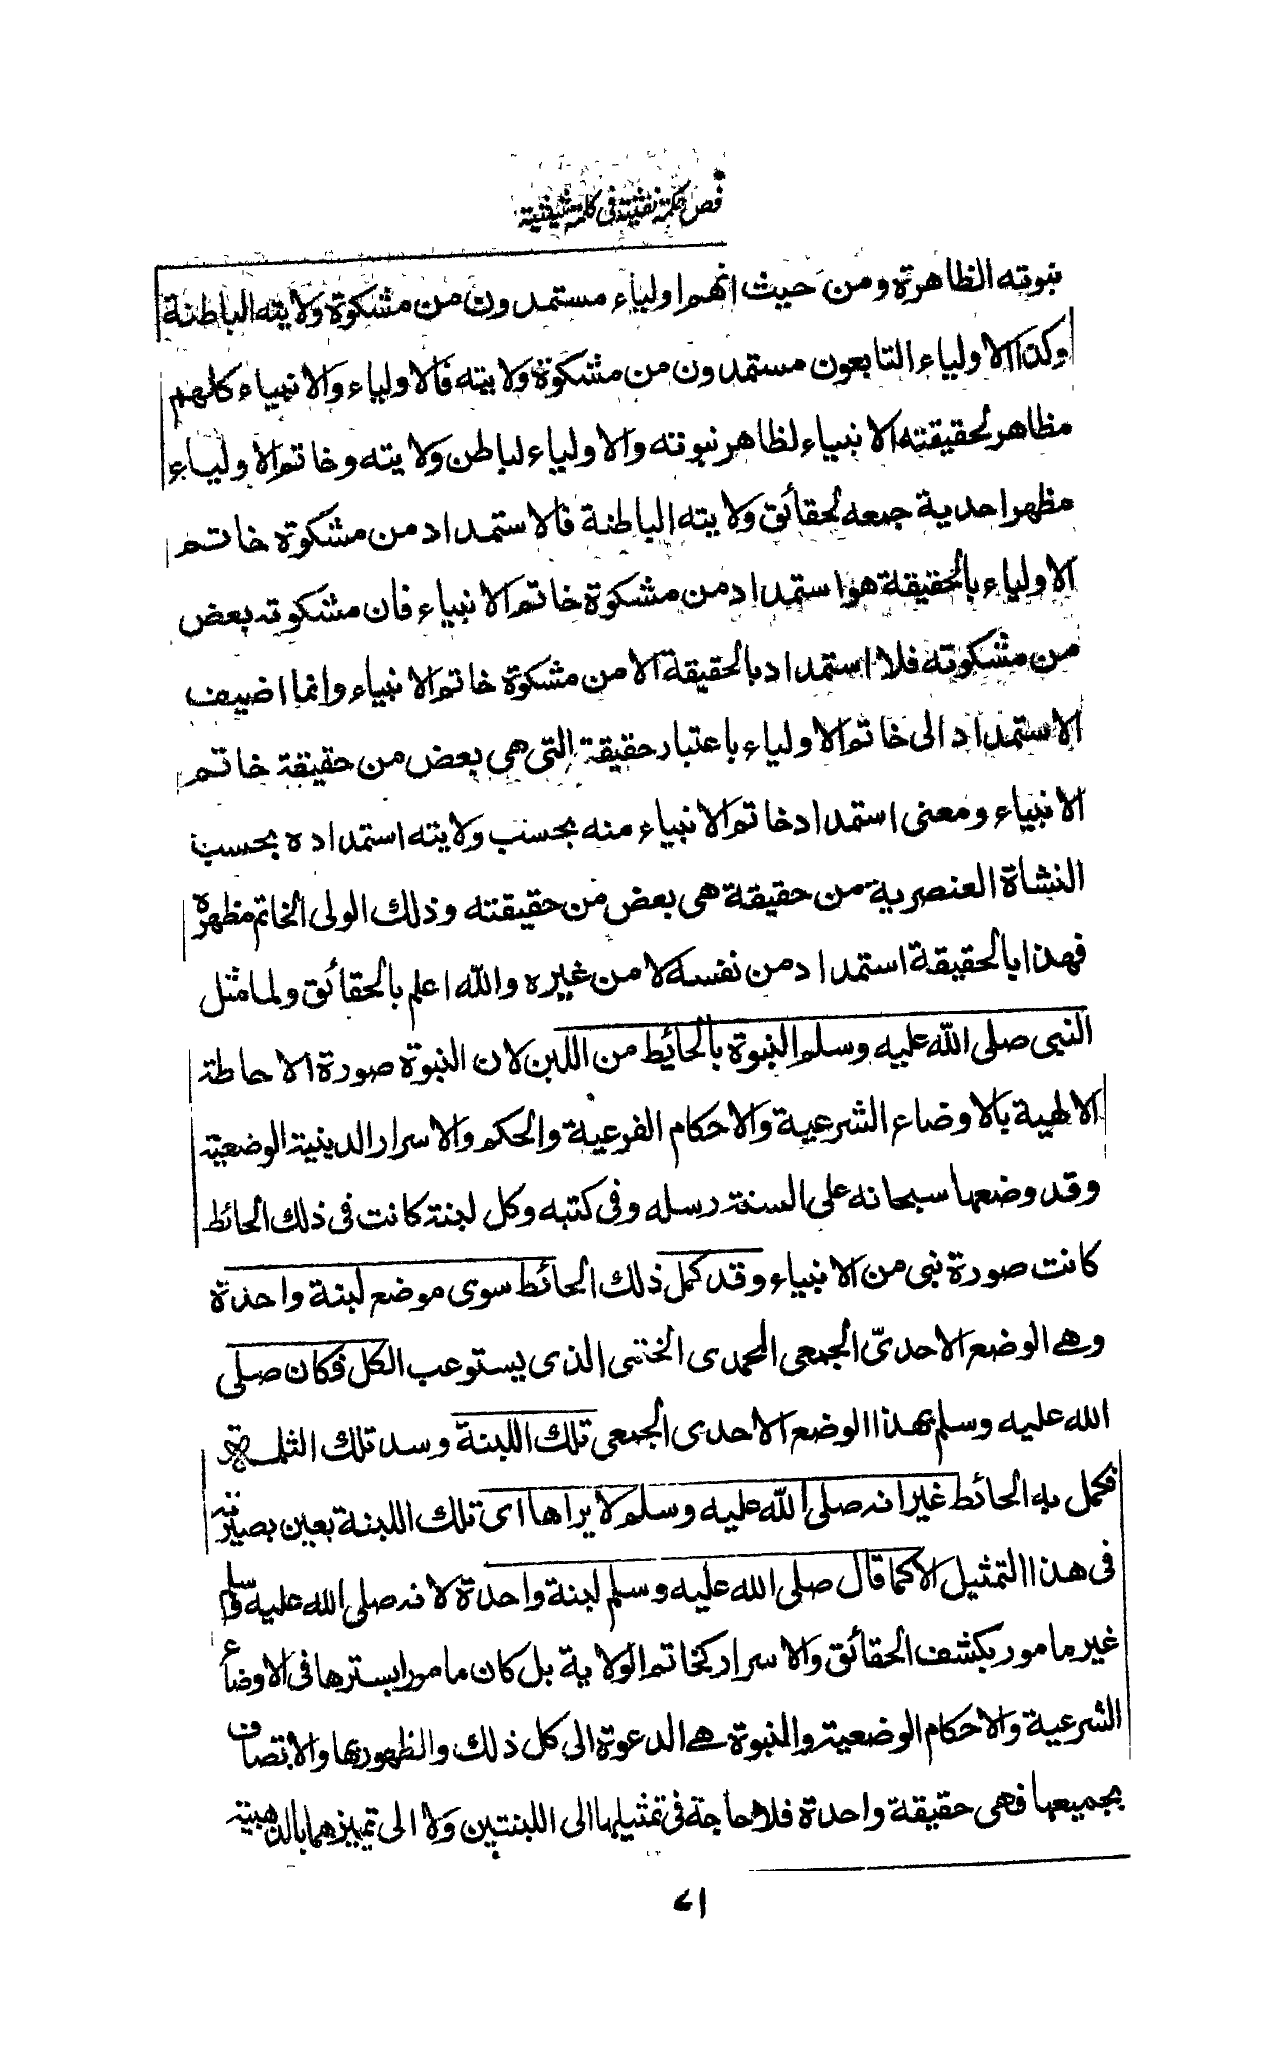 فص حكمة نفثية فى كلمة شيثية
نبوته الظاهرة ومن حيث انهم اولياء مستمدون من مشكوة ولايته الباطنة
وكذا الاولياء التابعون مستمدون من مشكوة ولايته فالاولياء والانبياء كلهم
مظاهر لحقيقته الانبياء لظاهر نبوته والاولياء لباطن ولايته وخاتم الاولياء
مظهر احدية جمعه لحقائق ولايته الباطنة فالاستمداد من مشكوة خاتم
الاولياء بالحقيقة هو استمداد من مشكوة خاتم الانبياء فان مشكوته بعض
من مشكوته فلا استمداد بالحقيقة الا من مشكوة خاتم الانبياء وانما اضيف
الاستمداد الى خاتم الاولياء باعتبار حقيقة التى هى بعض من حقيقة خاتم
الانبياء ومعنى استمداد خاتم الانبياء منه بحسب ولايته استمداده بحسب
النشاة العنصرية من حقيقة هى بعض من حقيقته وذلك الولى الخاتم مظهره
فهذا بالحقيقة استمداد من نفسه لا من غيره والله اعلم بالحقائق ولما مثل
النبى صلى الله عليه وسلم النبوة بالحائط من اللبن لان النبوة صورة الاحاطة
الالهية بالاوضاع الشرعية والاحكام الفرعية والحكم والاسرار الدينية الوضعية
وقد وضعها سبحانه على السنة رسله وفى كتبه وكل لبنة كانت فى ذلك الحائط
كانت صورة نبى من الانبياء وقد كمل ذلك الحائط سوى موضع لبنة واحدة
وهے الوضع الاحدىّ الجمعى المحمدى الختمى الذى يستوعب الكل فكان صلى
الله عليه وسلم بهذا الوضع الاحدى الجمعى تلك اللبنة وسد تلك الثلمة
فكمل به الحائط غير انه صلى الله عليه وسلم لا يراها اى تلك اللبنة بعين بصيرته
فى هذا التمثيل الا كما قال صلى الله عليه وسلم لبنة واحدة لانه صلى الله عليه وسلم
غير مامور بكشف الحقائق والاسرار كخاتم الولاية بل كان مامورا بسترها فى الاوضاع
الشرعية والاحكام الوضعية والنبوة هے الدعوة الى كل ذلك والظهور بها والاتصاف
بجميعها فهى حقيقة واحدة فلا حاجة فى تمثيلها الى اللبنتين ولا الى تمييزهما بالذهبية